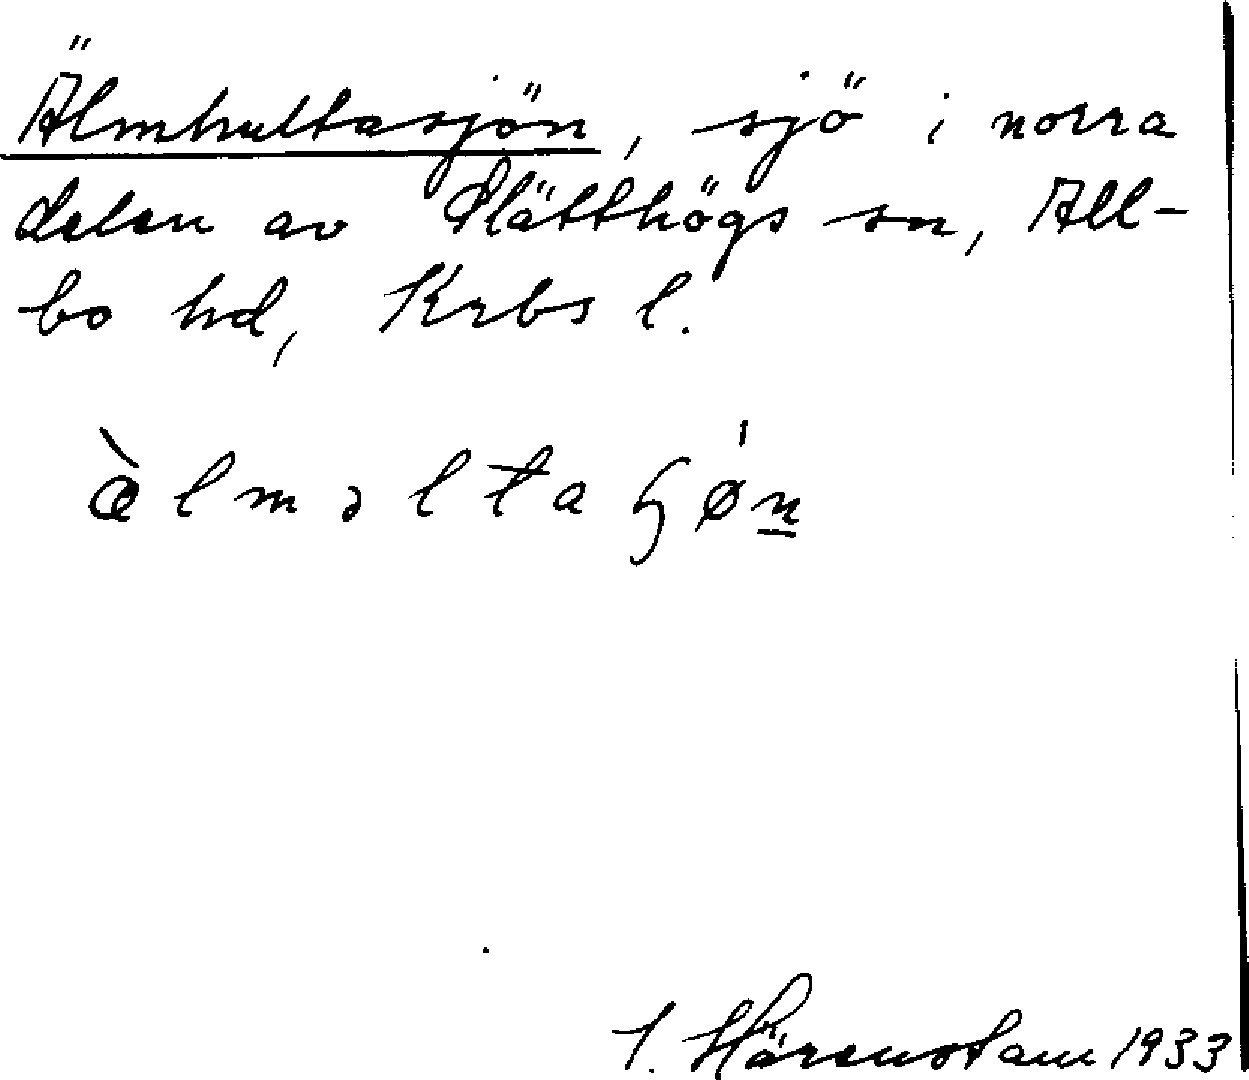 Älmhultasjön, sjö i norra
delen av Slätthögs sn, All-
bo hd, Krbs l.
æ̀lməltaɧǿn̲
1933